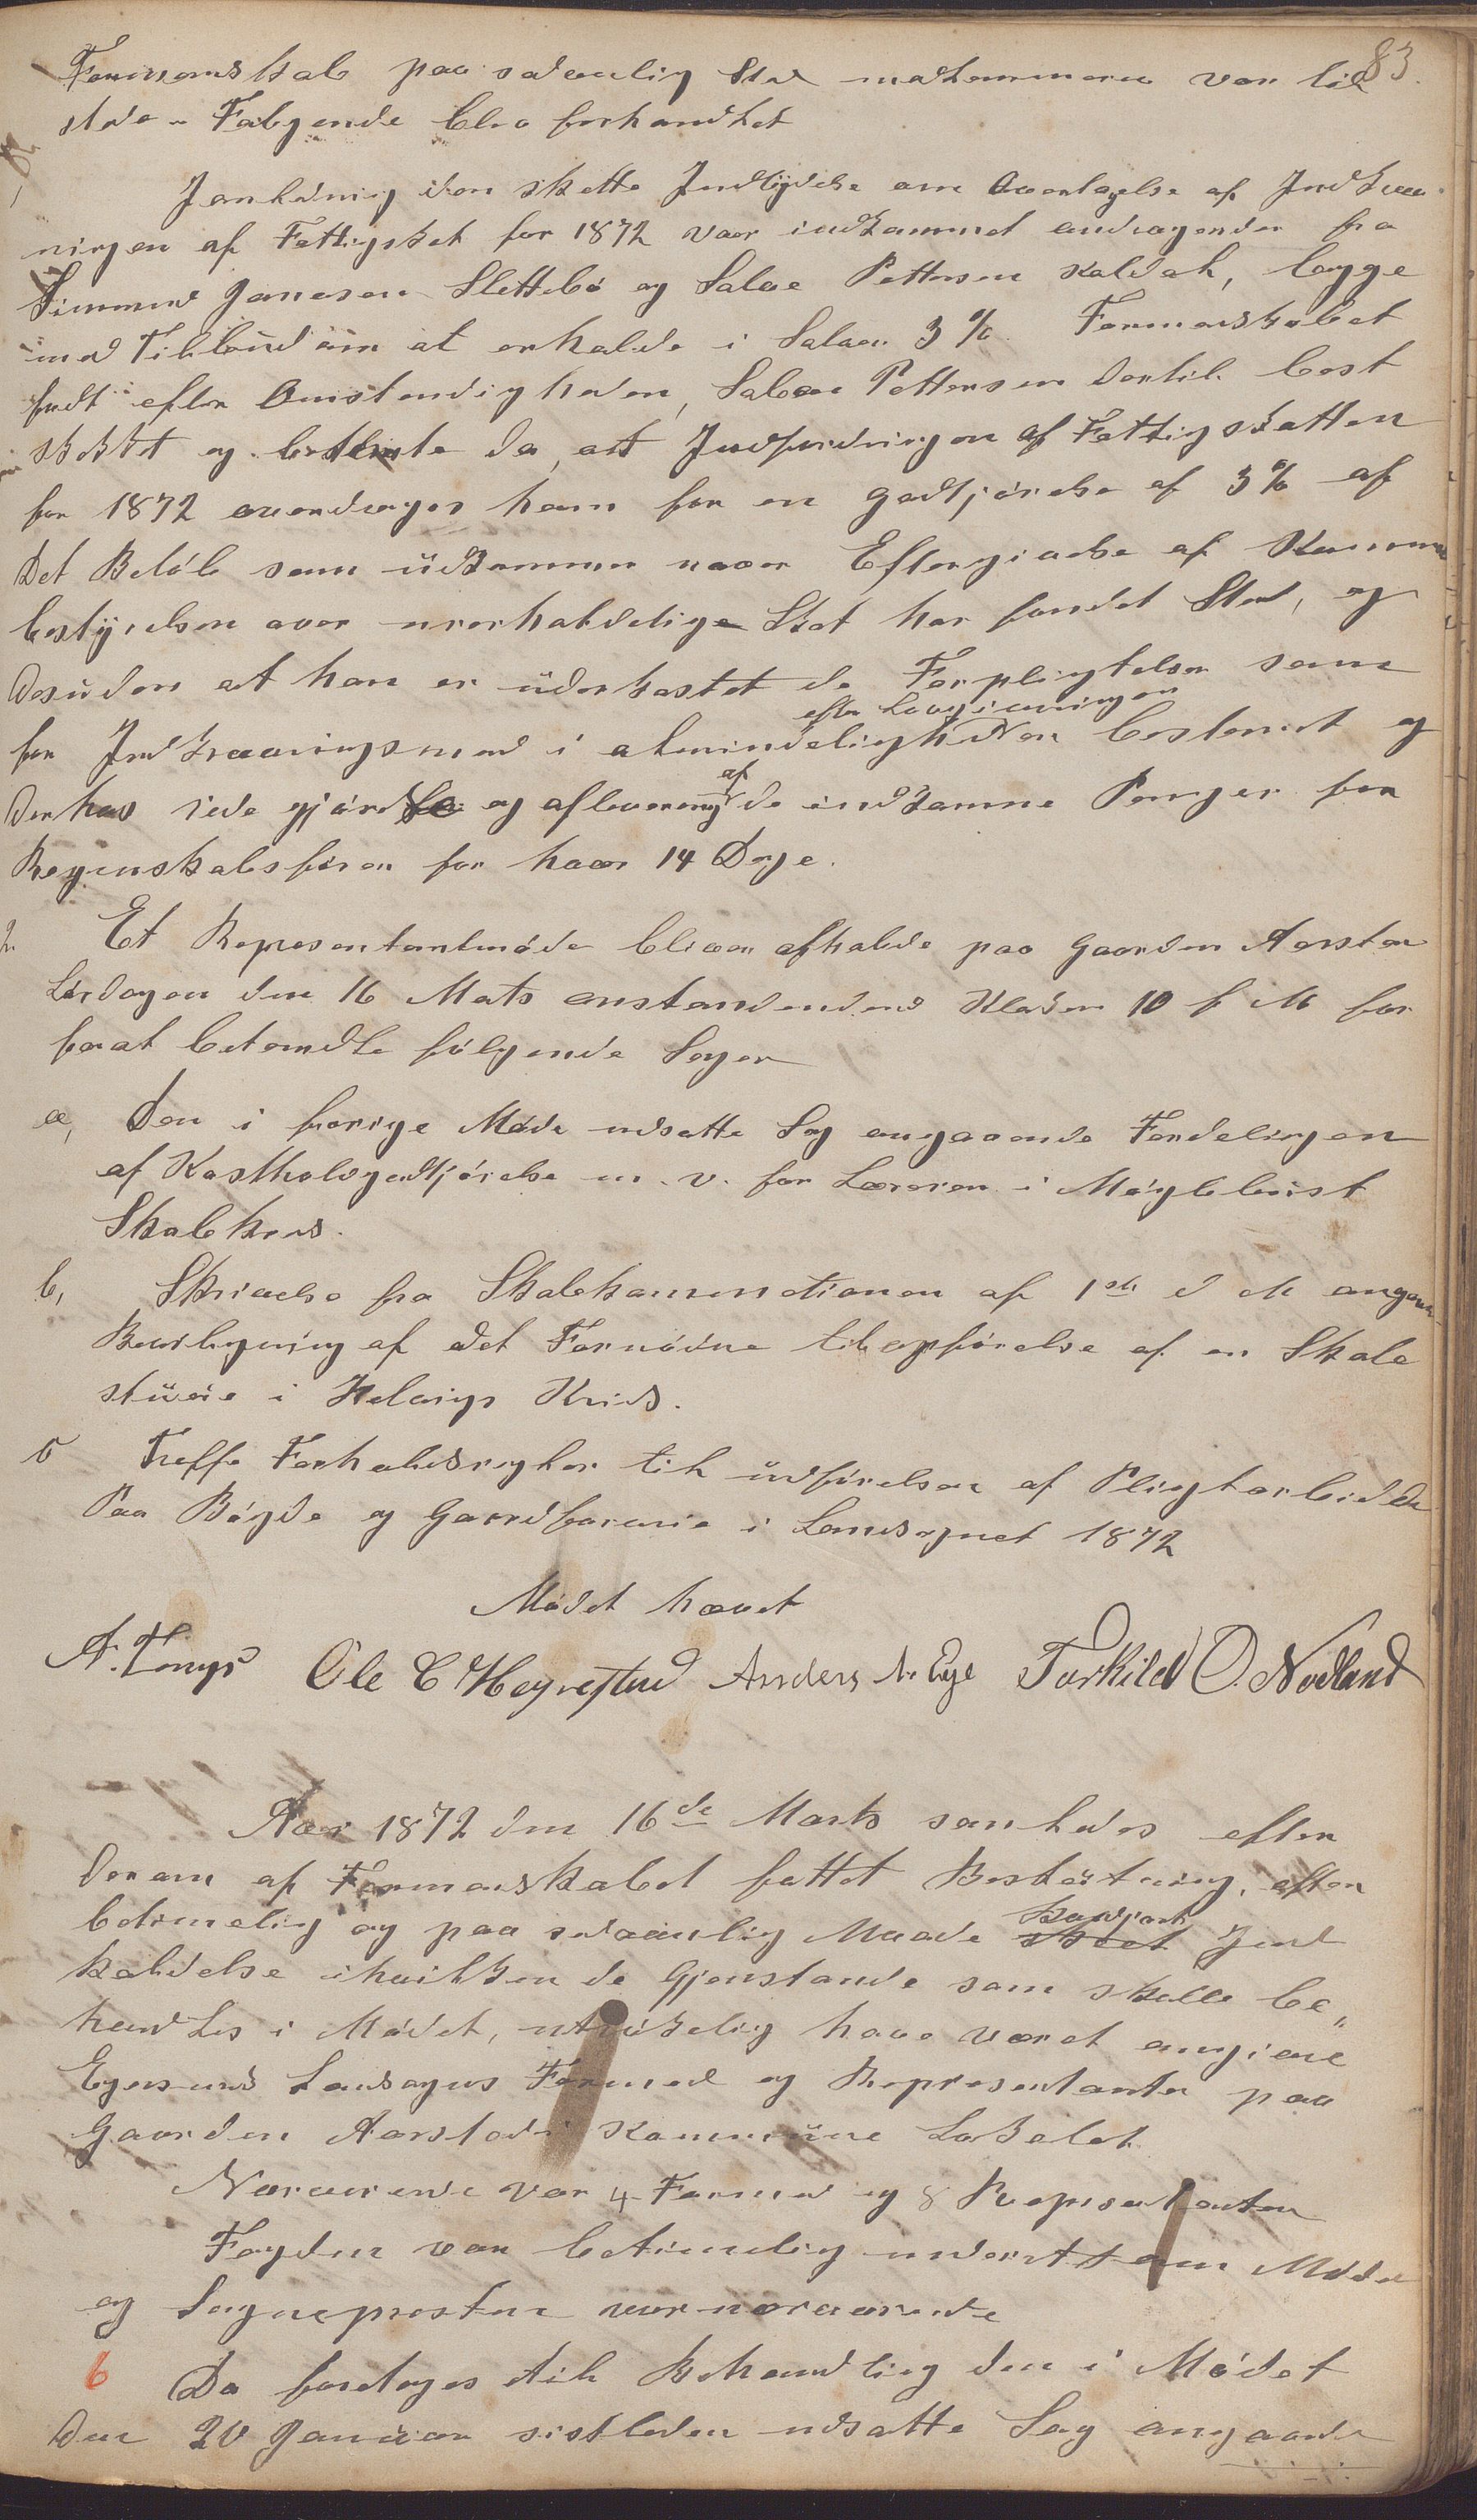 83
Formandskab paa sedvanlig Sted medlemmerne var til
stede - Følgende blev forhandlet
1, I anledning den skette Indbydelse om Overtagelse af Indkræv
ningen af Fattigskat for 1872 var indkommet andragender fra
Simmund Jonasen Slettebö og Salve Pettersen Koldal, begge
med Tilbud om at erholde i Salær 3 %. Formandskabet
fandt efter Omstendigheden, Salve Pettersen dertil best
skikket og bestemte da, at Indfordringen af Fattigskatten
for 1872 overdrages ham for en godtjörelse af 3 % af
det Belöb som udkommer naar Eftergivelse af Kommune
bestyrelsen over uerholdelige Skat har fundet Sted, og
desuden at han er underkastet de Forpligtelser som
efter Lovgivningen
for Indkrævningsmed i almindeligheden bestemt og
derhos rede gjörelse og aflevering af de indkomne Penger for
Regenskabsfören for hver 14 Dage.
2. Et Representantmöde bliver afholde paa Gaarden Aarstad
Lördagen den 16 Mats anstundende Klokken 10 f M for
forat behandle fölgende Sager
a, Den i forige Möde udsatte Sag angaaende Fordelingen
af Kostholdgodtjörelse m. v. for Læreren i Möglebust
Skolekreds.
b, Skrivelse fra Skolekommitionen af 1ste d M angaaende
Bevilgning af det Fornödne til opförelse af en Skole
stuve i Helvigs Krids.
c Treffe Forholdsregler til udförelsen af Pligtarbeidet
Paa Böyde og Gaardsveie i Landsognet 1872
Mödet hævet
A. Tengs Ole C Høgrestad Anders A. Eye Torkild O. Nodland
Aar 1872 den 16de Marts samledes efter
derom af Formandskabet fattet Beslutning, efter
betimelig og paa sedvanlig Maade skeet kundgjort Ind
kaldelse ihvilken de Gjenstande som skulle be„
handles i Mödet, udtrükkelig have været angivne
Egersunds Landsogns Formend og Representanter paa
Gaarden Aarstad i Kommüne Lokalet
Nærverende var 4 Formend og 8 Representanter
Fogden var betimelig underrettet om Mödet
og Sogneprosten var nærverende
6 Da foretoges til Behandling den i Mödet
den 20 Januar sistleden udsatte Sag angaaende